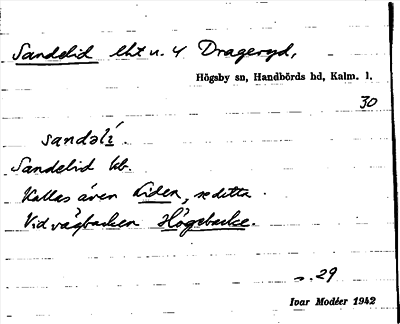 Sandelid lht u. 4 Drageryd,
Högsby sn, Handbörds hd, Kalm. l.
30
sandəlí.
Sandelid kb.
Kallas även Liden, se detta.
Vid vägbacken Högebacke.
s. 29
Ivar Modéer 1942